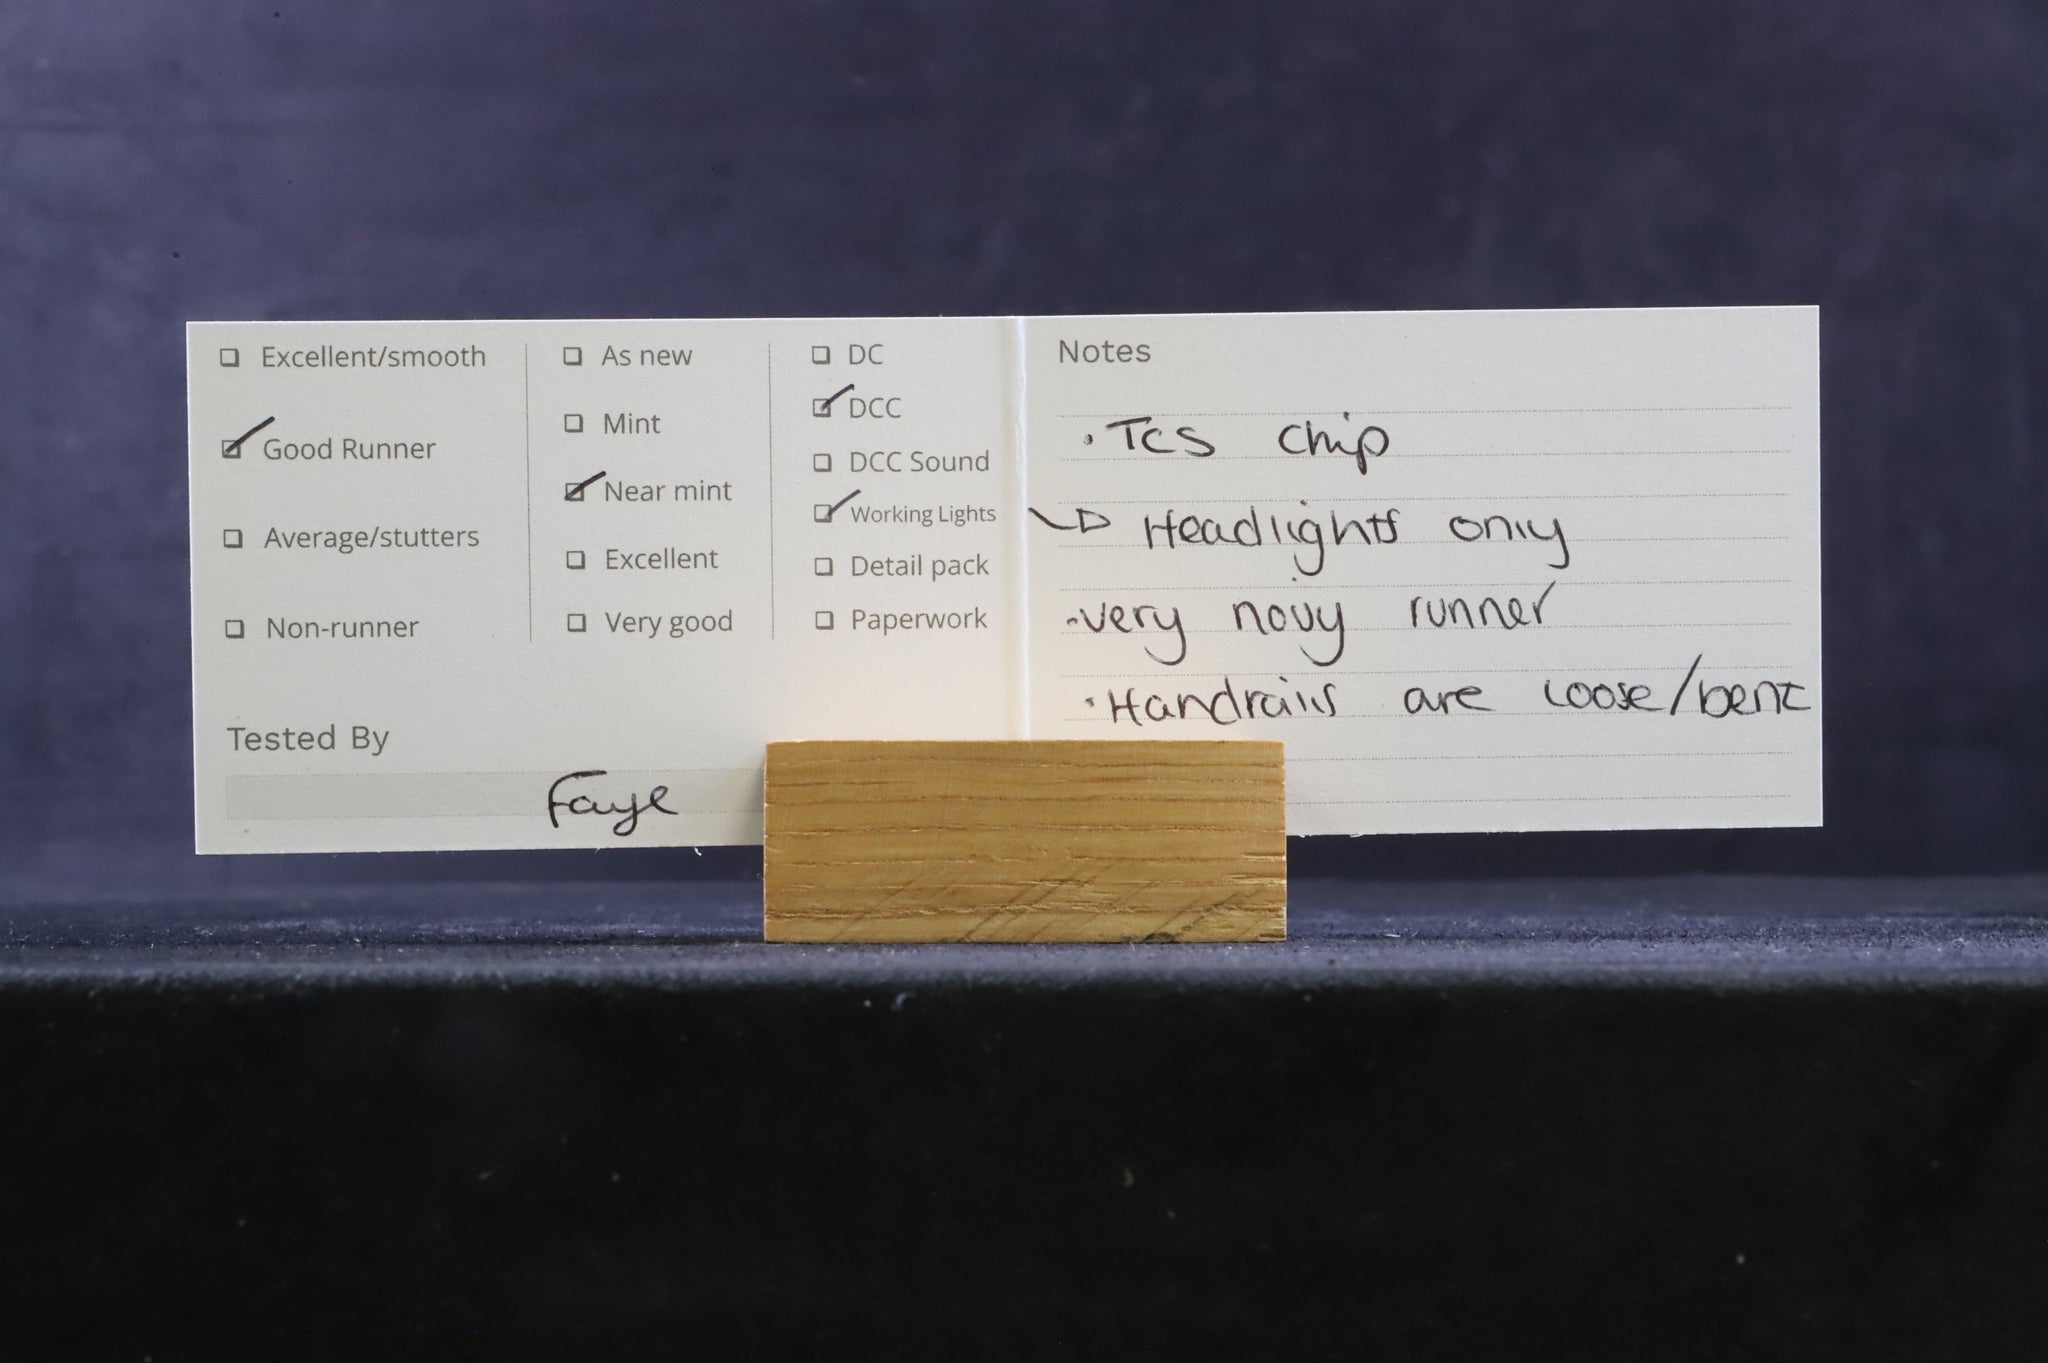 ☐ Excellent/smooth
☑ Good Runner
☐ Average/stutters
☐ Non-runner
☐ As new
☐ Mint
☑ Near mint
☐ Excellent
☐ Very good
☐ DC
☑ DCC
☐ DCC Sound
☑ Working Lights
☐ Detail pack
☐ Paperwork
Tested By
Faye
Notes
• TCS chip
→ Headlights only
• very runner
• Handrails are loose/bent